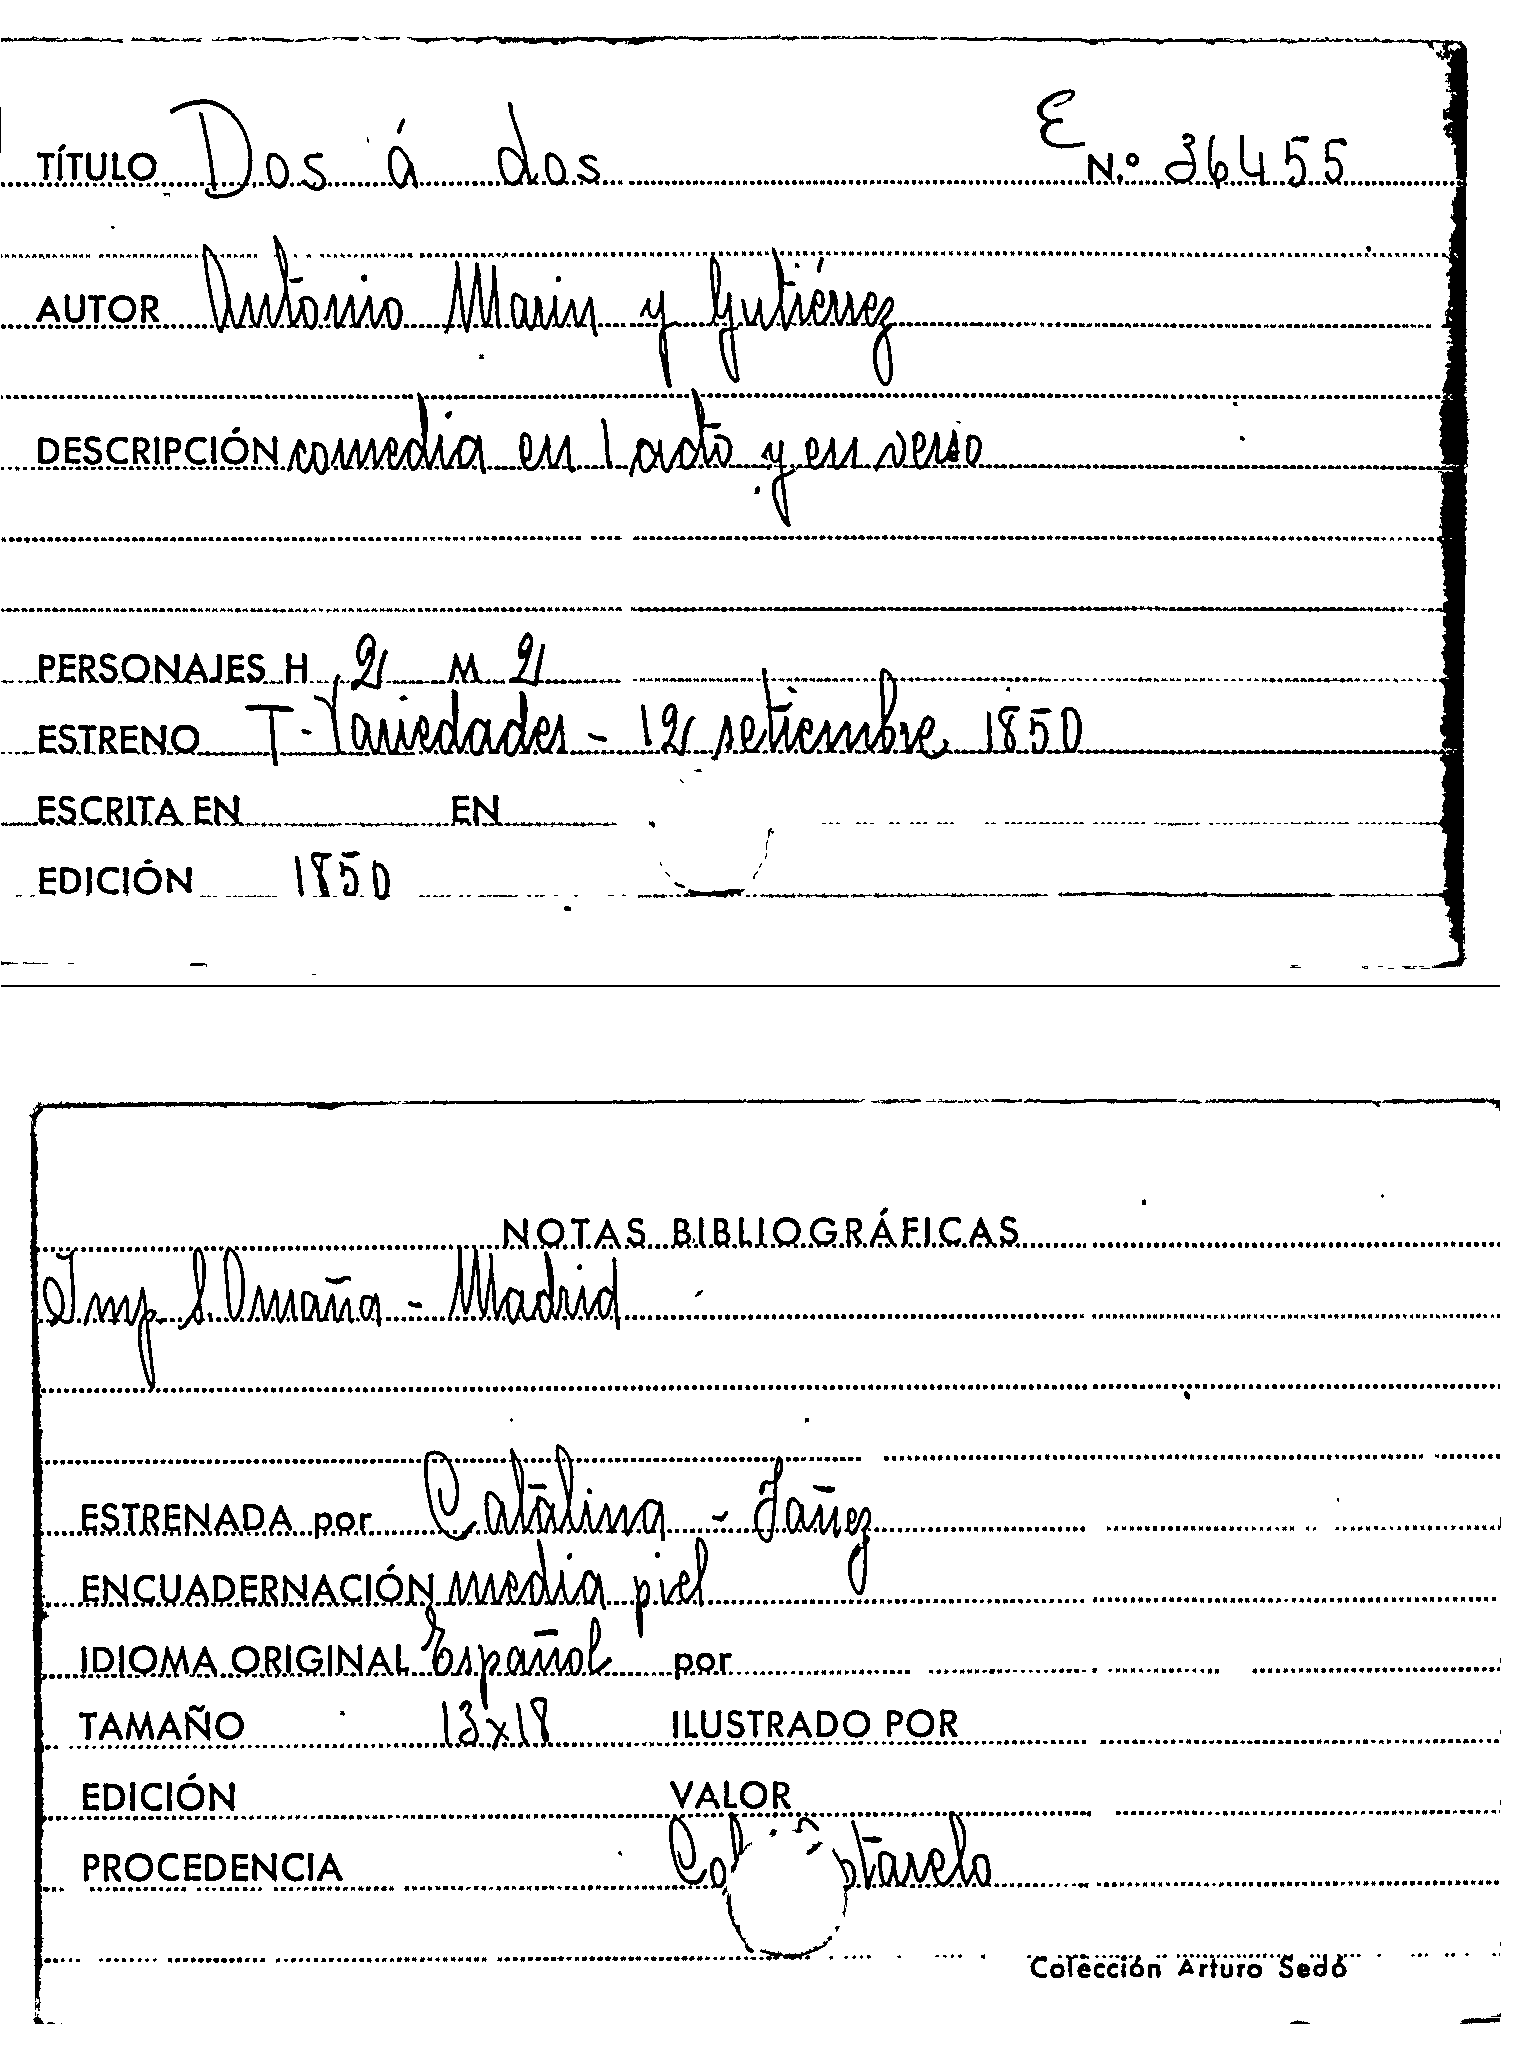 E
TÍTULO Dos á dos N.º 36455
AUTOR Antonio Marin y Gutiérrez
DESCRIPCIÓN comedia en 1 acto y en verso
PERSONAJES H 2 M 2
ESTRENO T. Variedades - 12 setiembre 1850
ESCRITA EN EN
EDICIÓN 1850
NOTAS BIBLIOGRÁFICAS
Imp. S. Omaña - Madrid
ESTRENADA por Catalina - Jañez
ENCUADERNACIÓN media piel
IDIOMA ORIGINAL Español por
TAMAÑO 13x18 ILUSTRADO POR
EDICIÓN VALOR
PROCEDENCIA
Colección Arturo Sedó